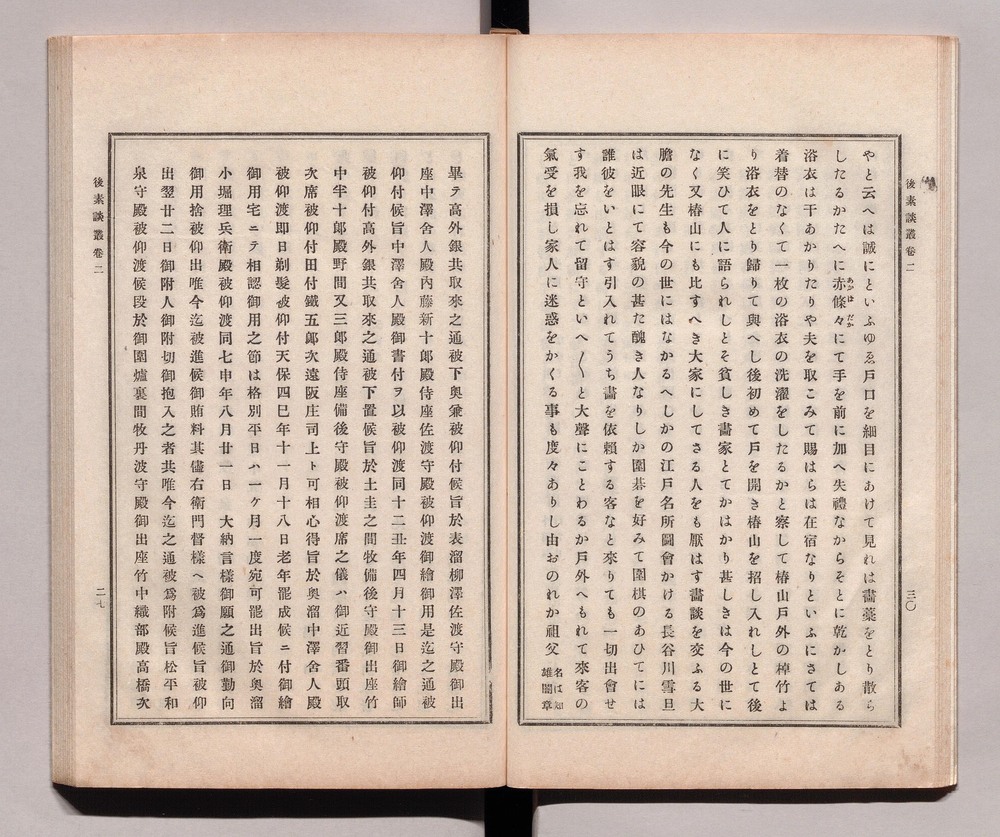 後素談叢卷二
三〇
やと云へは誠にといふゆゑ戸口を細目にあけて見れは畵藁をとり散ら
したるかたへに赤條々にて手を前に加へ失禮なからそとに乾かしある
浴衣は干あかりたりや夫を取こみて賜はらは在宿なりといふにさては
着替のなくて一枚の浴衣の洗濯をしたるかと察して椿山戸外の棹竹よ
り浴衣をとり歸りて與へし後初めて戸を開き椿山を招し入れしとて後
に笑ひて人に語られしとそ貧しき畵家とてかはかり甚しきは今の世に
なく又椿山にも比すへき大家にしてさる人をも厭はす畵談を交ふる大
膽の先生も今の世にはなかるへしかの江戸名所圖會かける長谷川雪旦
は近眼にて容貌の甚た醜き人なりしか圍碁を好みて圍棋のあひてには
誰彼をいとはす引入れてうち畵を依賴する客なと來りても一切出會せ
す我を忘れて留守といへ〱と大聲にことわるか戸外へもれて來客の
氣受を損し家人に迷惑をかくる事も度々ありし由おのれか祖父名は知雄關章
後素談叢卷二
二七
畢テ高外銀共取來之通被下奧兼被仰付候旨於表溜柳澤佐渡守殿御出
座中澤舍人殿內藤新十郞殿侍座佐渡守殿被仰渡御繪御用是迄之通被
仰付候旨中澤舍人殿御書付ヲ以被仰渡同十二丑年四月十三日御繪師
被仰付高外銀共取來之通被下置候旨於土圭之間牧備後守殿御出座竹
中半十郞殿野間又三郞殿侍座備後守殿被仰渡席之儀ハ御近習番頭取
次席被仰付田付鐵五郞次遠阪庄司上ト可相心得旨於奧溜中澤舍人殿
被仰渡即日剃髮被仰付天保四巳年十一月十八日老年罷成候ニ付御繪
御用宅ニテ相認御用之節は格別平日ハ一ケ月一度宛可罷出旨於奧溜
小堀理兵衞殿被仰渡同七申年八月廿一日　大納言樣御願之通御勤向
御用捨被仰出唯今迄被進候御賄料其儘右衞門督樣へ被爲進候旨被仰
出翌廿二日御附人御附切御抱入之者共唯今迄之通被爲附候旨松平和
泉守殿被仰渡候段於御圍爐裏間牧丹波守殿御出座竹中織部殿高橋次